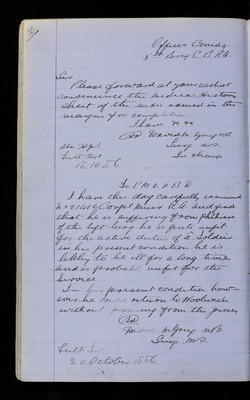 Officer Comdg
5th Brig C. D. RA.
Sir
Please forward at your earliest
convenience the Medical History
Sheet of the man named in the
margin for completion
I have &c &c
Sd David
Surg
In charge
Stn Hpl
16.10.86
To P.M.O. H B D
I have this day carefully examined
Corpl R.E. and find
that he is suffering from phlebitis
of the left leg he is quite unfit
for the active duties of a Soldier
in his present condition he is
likely to be ill for a long time
and is probably unfit for the
Service
In his present condition how-
ever he could return to Woolwich
without from the
Sd
Surg M.S.
20 October 1886